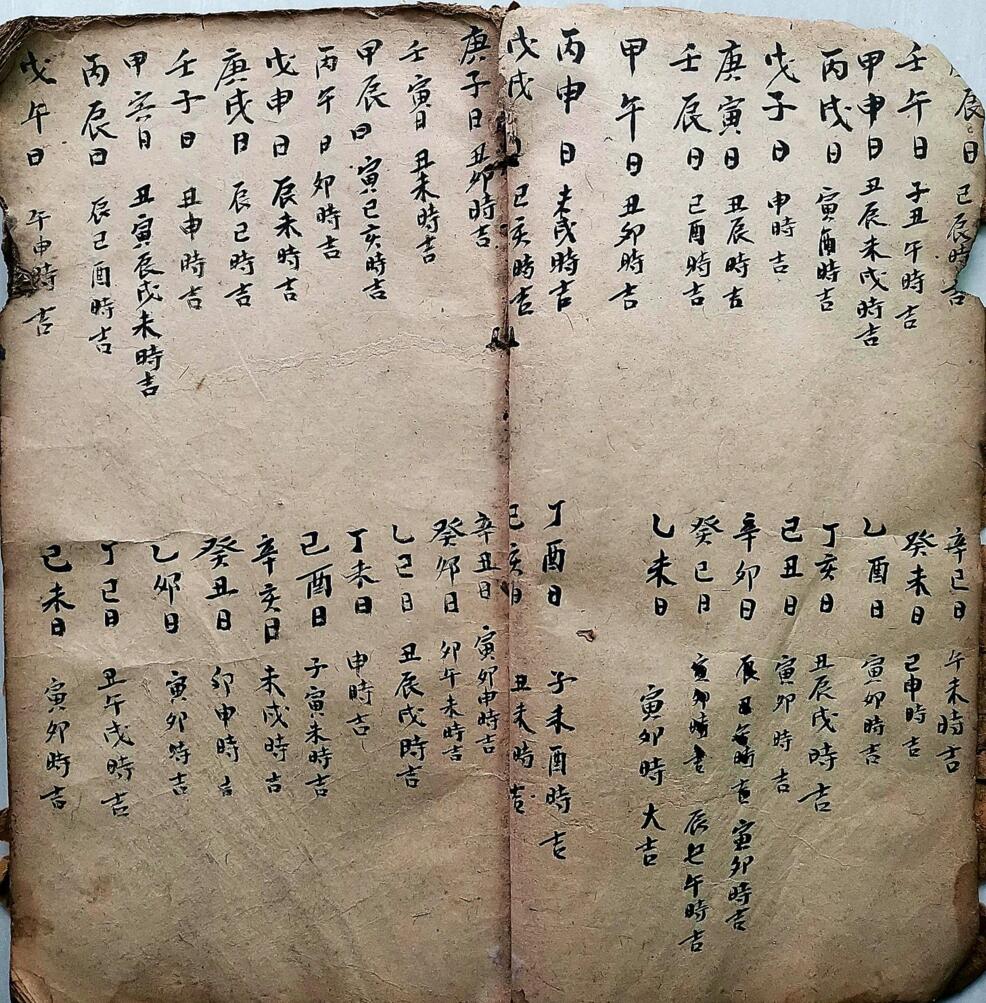 辰日 巳辰時吉
辛巳日 午未時吉
壬午日 子丑午時吉
癸未日 巳申時吉
甲申日 丑辰未戌時吉
乙酉日 寅卯時吉
丙戌日 寅酉時吉
丁亥日 丑辰戌時吉
戊子日 申時吉
己丑日 寅卯時吉
庚寅日 丑辰時吉
辛卯日 寅卯時吉
壬辰日 巳酉時吉
癸巳日 辰巳午時吉
甲午日 丑卯時吉
乙未日 寅卯時大吉
丙申日 未戌時吉
丁酉日 子未酉時吉
戊戌 巳亥時吉
己亥日 丑未時吉
庚子日 丑卯時吉
辛丑日 寅卯申時吉
壬寅日 丑未時吉
癸卯日 卯午未時吉
甲辰日 寅巳亥時吉
乙巳日 丑辰戌時吉
丙午日 卯時吉
丁未日 申時吉
戊申日 辰未時吉
己酉日 子寅未時吉
庚戌日 辰巳時吉
辛亥日 未戌時吉
壬子日 丑申時吉
癸丑日 卯申時吉
甲日 丑寅辰戌未時吉
乙卯日 寅卯時吉
丙辰日 辰巳酉時吉
丁巳日 丑午戌時吉
戊午日 午申時吉
己未日 寅卯時吉